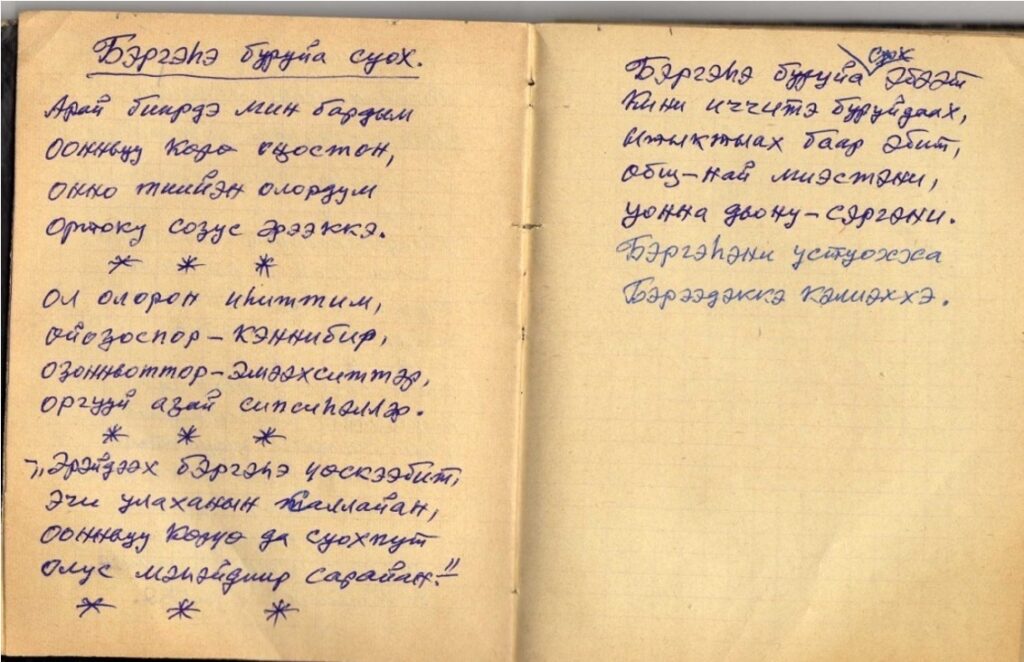 Бэргэһэ буруйа суох.
Арай биирдэ мин бардым
Оонньуу көрө оҕостон,
онно тиийэн олордум
ортоку соҕус эрээккэ.
* * *
Ол олорон иһиттим,
ойоҕоспор – кэннибир,
оҕонньоттор – эмээхситтэр,
оргууй аҕай сипсиһэллэр.
* * *
– „Эрэйдээх бэргэһэ үөскээбит,
эчи улаханын таллайан,
Оонньуу көрүө да суохпут
олус мэһэйдиир сарайан."
* * *
Бэргэһэ буруйа суох эбээт
Кини иччитэ буруйдаах,
ытыктыах баар эбит,
общ-най миэстэни,
уонна дьону – сэргэни.
Бэргэһэни устуохха
Бэрээдэккэ кэлиэххэ.